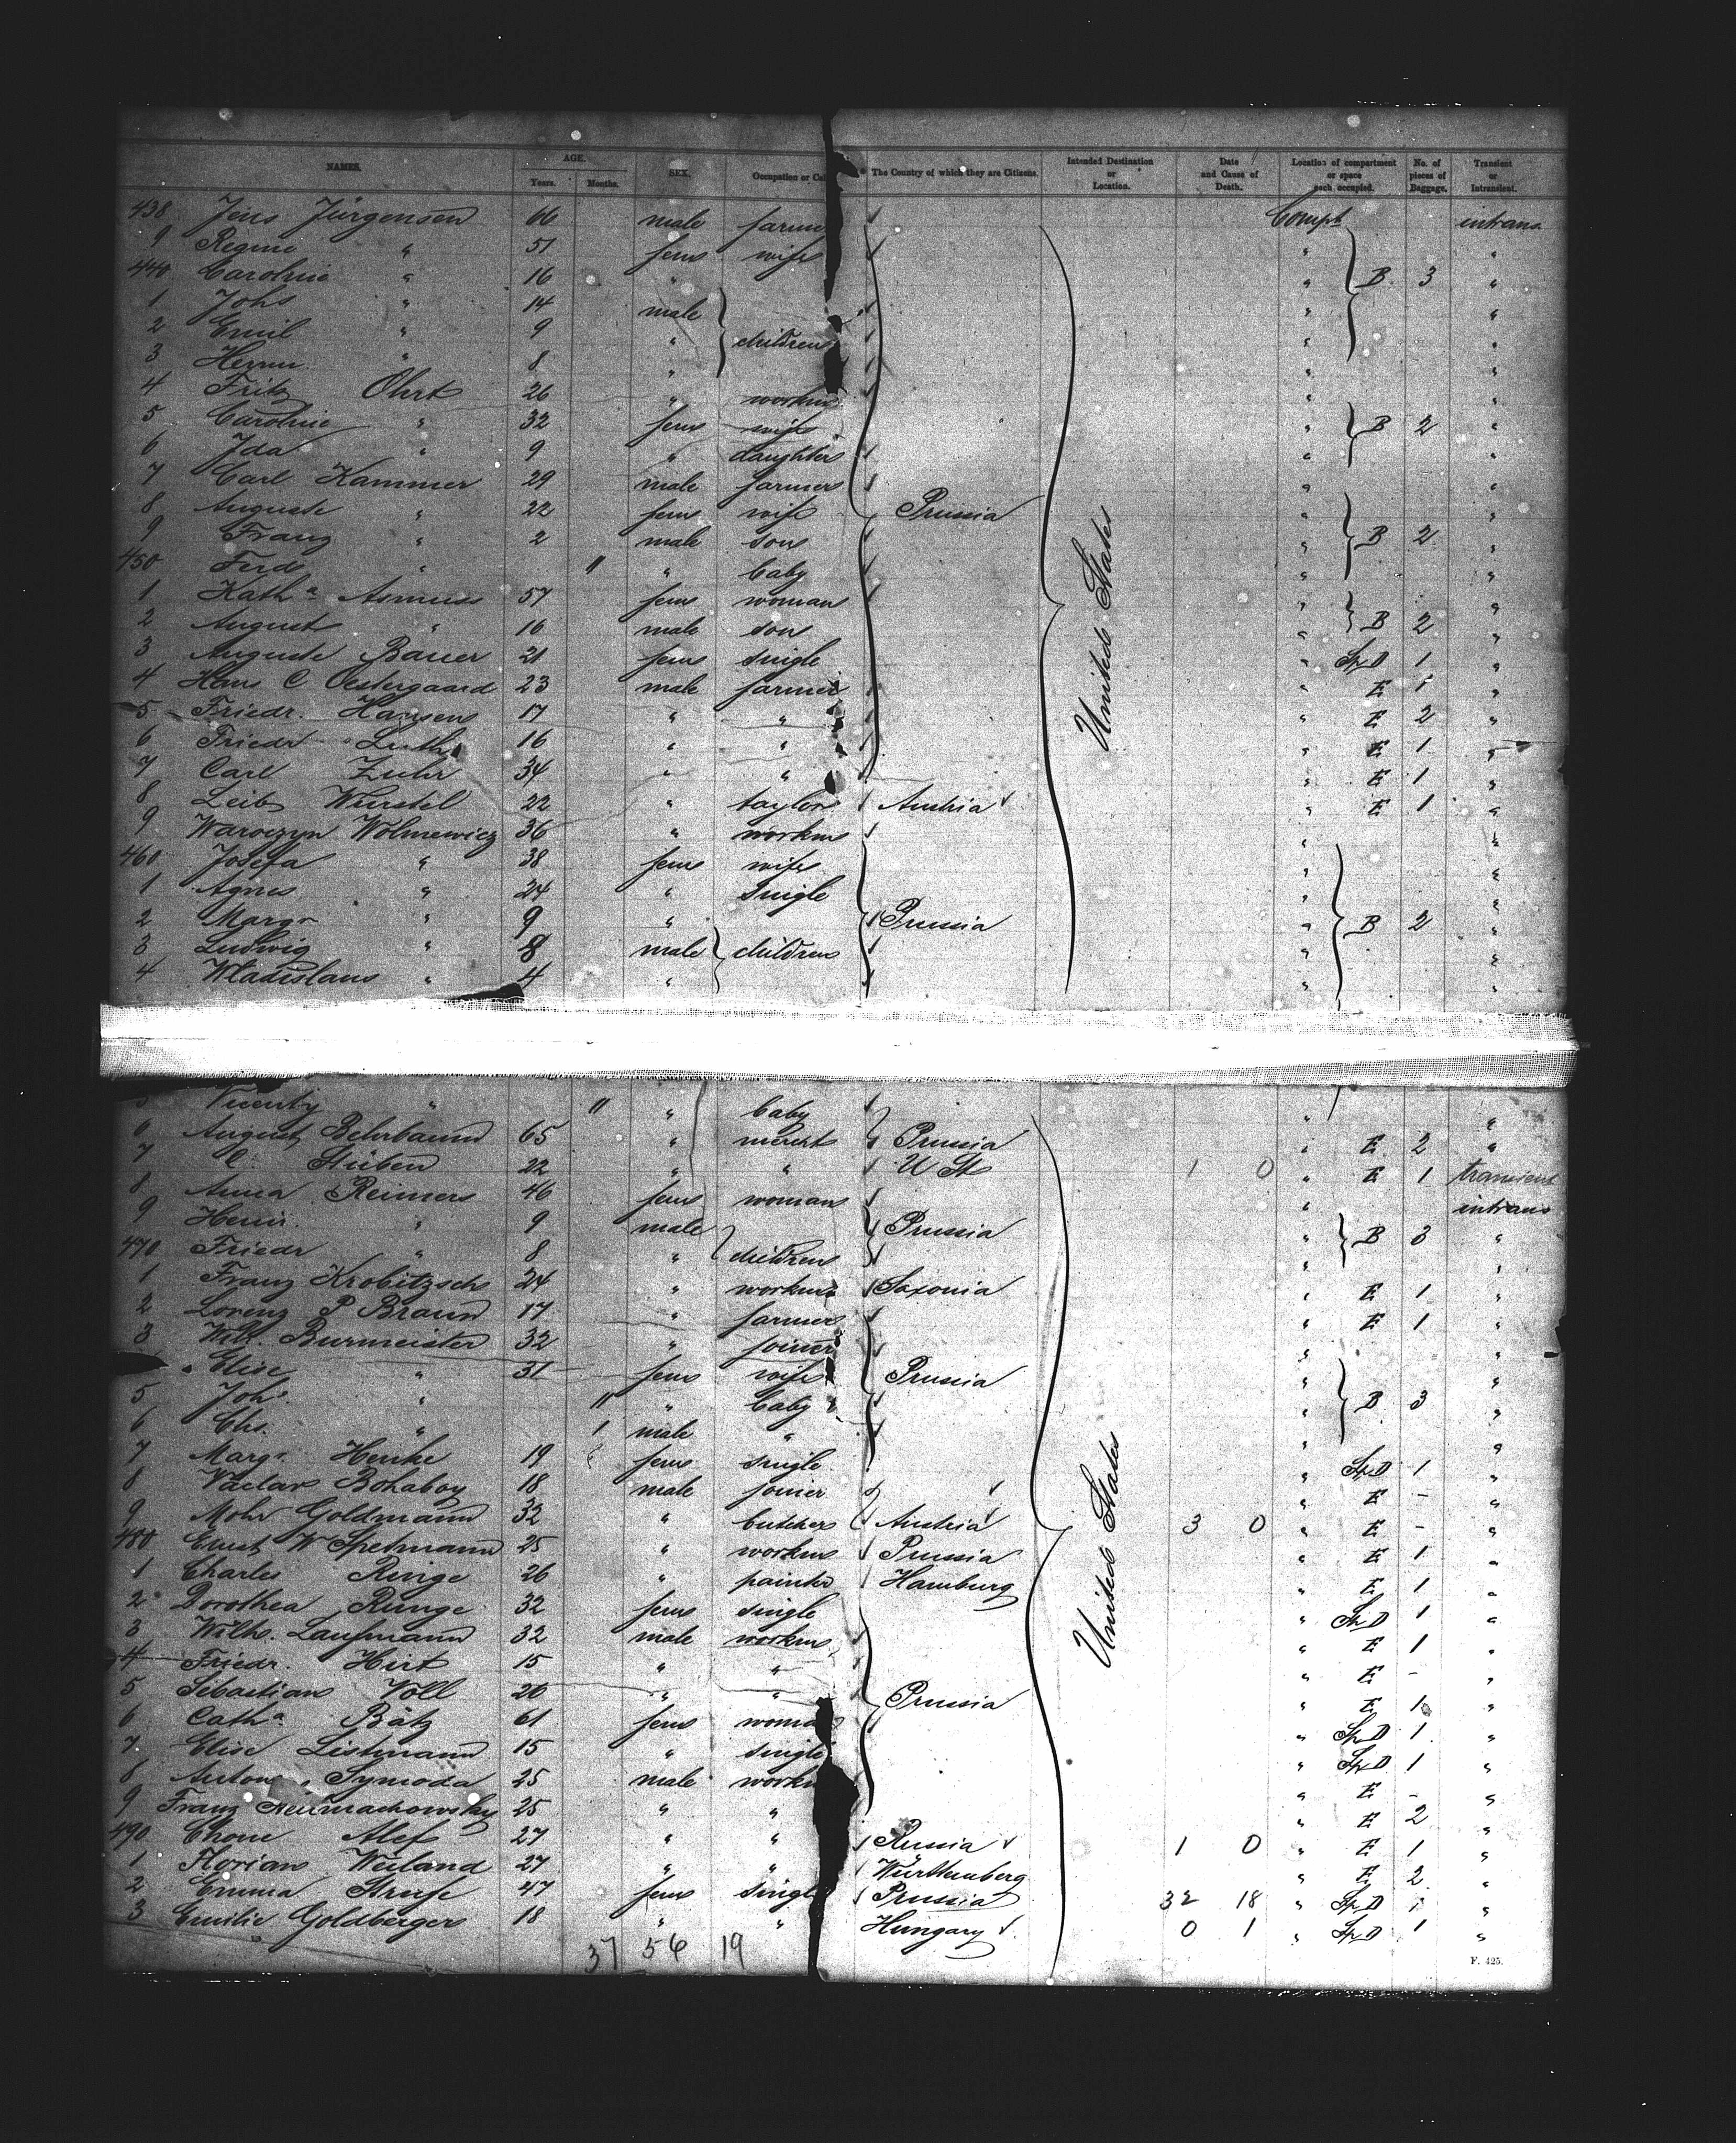 NAMES. AGE. Years. Months. SEX. Occupation or Cal The Country of which they are Citizens. Intended Destination or Location. Date and Cause of Death. Location of compartment or space each occupied. No. of pieces of Baggage. Transient or Intransient.
438 Jens Jürgensen 66 male farme Compt intrans
9 Regine " 51 fem wife " "
440 Caroline " 16 " " B 3 "
1 Johs " 14 male " "
2 Emil " 9 " children " "
3 Herm " 8 " " "
4 Fritz Ohrt 26 " worker " "
5 Caroline " 32 fem wife " B 2 "
6 Ida " 9 " daughter " "
7 Carl Kammer 29 male farmer " "
8 Auguste " 22 fem wife Prussia " "
9 Franz " 2 male son " B 2 "
450 Ferd " 11 " baby " "
1 Kath a Asmuss 57 fem woman " "
2 August " 16 male son " B 2 "
3 Auguste Bauer 21 fem single " Sp D 1 "
4 Hans C Oestergaard 23 male farmer " E 1 "
5 Friedr. Hansen 17 " " " E 2 "
6 Friedr Luth 16 " " " E 1 "
7 Carl Zuhr 34 " " " E 1 "
8 Leib Wurstel 22 " taylor Austria " E 1 "
9 Waroczyn Wolniewicz 36 " worker " "
460 Josefa " 38 fem wife " "
1 Agnes " 24 " single " "
2 Marg a " 9 " Prussia " B 2 "
3 Ludwig " 8 male children " "
4 Wladislaus " 4 " " "
United States
5 Vicenty " 11 " baby " "
6 August Behrbaum 65 " mercht Prussia " E 2 "
7 C. Stüben 22 " " U St 1 0 " E 1 transient
8 Anna Reimers 46 fem woman " intrans
9 Henri " 9 male Prussia " B 3 "
470 Friedr " 8 " children " "
1 Franz Krobitzsch 24 " worker Saxonia " E 1 "
2 Lorenz P Braun 17 " farmer " E 1 "
3 Wilh. Burmeister 32 " joiner " "
Elise " 31 fem wife Prussia " "
5 Joh. " 11 " baby " B 3 "
6 Chr. " 1 male " " "
7 Marg a Henke 19 fem single " Sp D 1 "
8 Vaclav Bohaboy 18 male joiner " E - "
9 Mohr Goldmann 32 " butcher Austria 3 0 " E - "
480 Ernst W Spetmann 25 " worker Prussia " E 1 "
1 Charles Ringe 26 " painter Hamburg " E 1 "
2 Dorothea Runge 32 fem single " Sp D 1 "
3 Wilh. Laufmann 32 male worker " E 1 "
4 Friedr. Hirt 15 " " " E - "
5 Sebastian Voll 20 " " Prussia " E 1 "
6 Cath a Bätz 61 fem woma " Sp D 1 "
7 Elise Listmann 15 " single " Sp D 1 "
8 Anton Symoda 25 male worke " E - "
9 Franz 25 " " " E 2 "
490 Chone Alef 27 " " Russia 1 0 " E 1 "
1 Florian Weiland 27 " " Württemberg " E 2 "
2 Emma Strufe 47 fem single Prussia 32 18 " Sp D 1 "
3 Emilie Goldberger 18 " " Hungary 0 1 " Sp D 1 "
United States
37 56 19
F. 425.